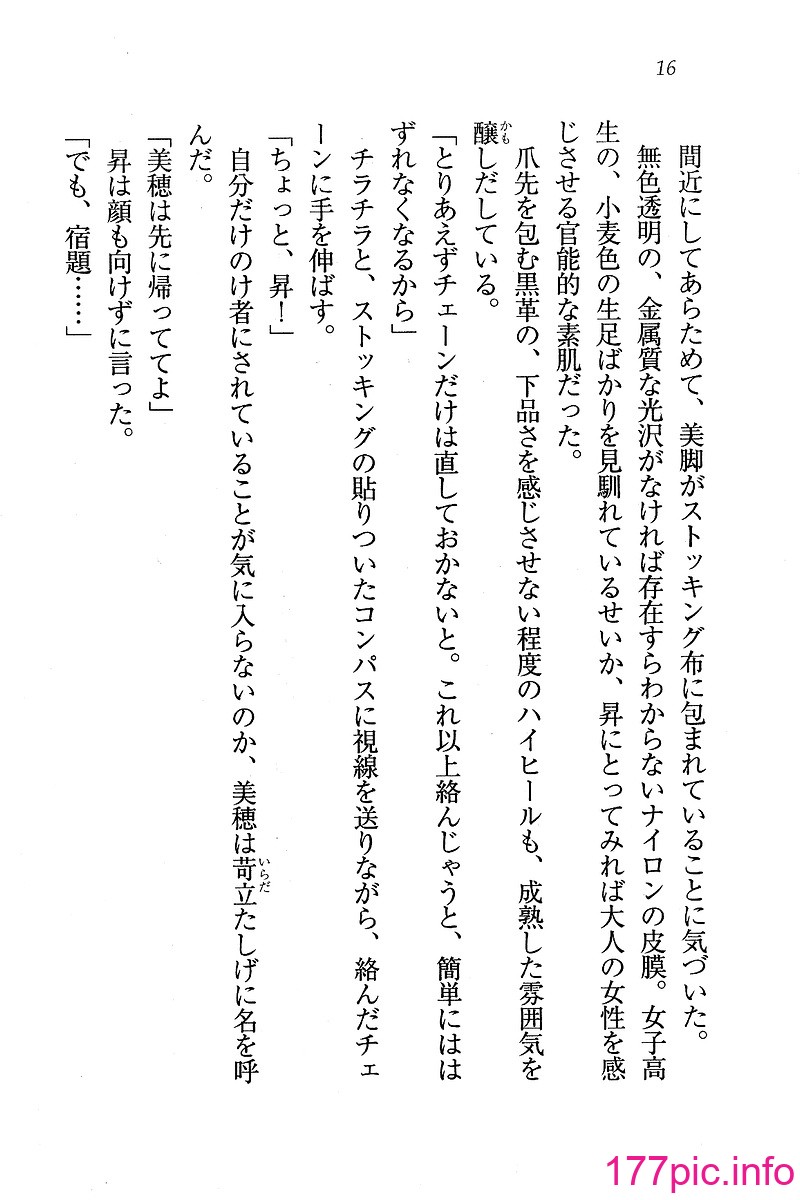 16
間近にしてあらためて、美脚がストッキング布に包まれていることに気づいた。
無色透明の、金属質な光沢がなければ存在すらわからないナイロンの皮膜。女子高
生の、小麦色の生足ばかりを見馴れているせいか、昇にとってみれば大人の女性を感
じさせる官能的な素肌だった。
爪先を包む黒革の、下品さを感じさせない程度のハイヒールも、成熟した雰囲気を
醸しだしている。
「とりあえずチェーンだけは直しておかないと。これ以上絡んじゃうと、簡単にはは
ずれなくなるから」
チラチラと、ストッキングの貼りついたコンパスに視線を送りながら、絡んだチェ
ーンに手を伸ばす。
「ちょっと、昇！」
自分だけのけ者にされていることが気に入らないのか、美穂は苛立たしげに名を呼
んだ。
「美穂は先に帰っててよ」
昇は顔も向けずに言った。
「でも、宿題……」
かも
いらだ
177pic.info